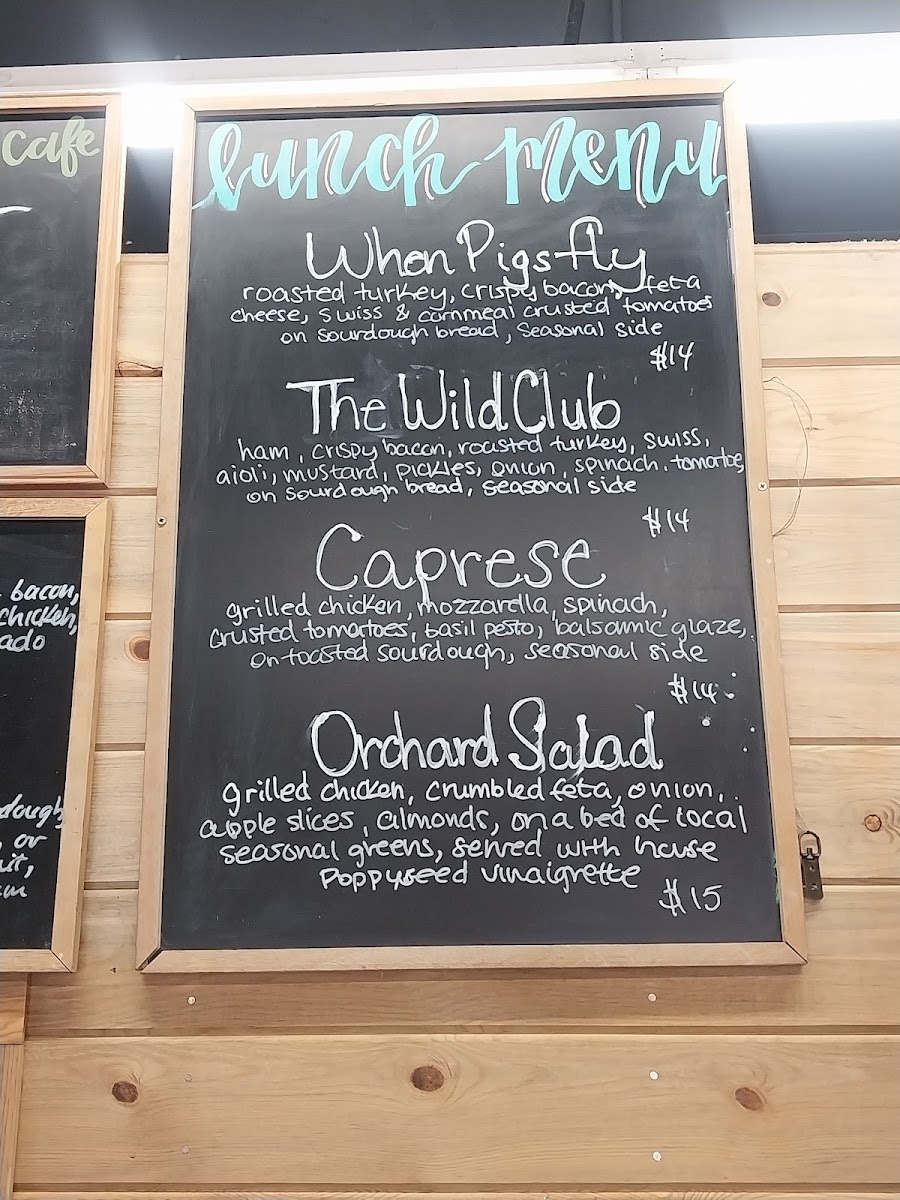 cafe
bacon,
chicken,
ado
dough
or
uit,
lunch menu
When Pigs fly
roasted turkey, crispy bacon, feta
cheese, swiss & cornmeal crusted tomatoes
on sourdough bread, seasonal side
$14
The Wild Club
ham, crispy bacon, roasted turkey, swiss,
aioli, mustard, pickles, onion, spinach, tomatoes,
on sourdough bread, seasonal side
$14
Caprese
grilled chicken, mozzarella, spinach,
crusted tomatoes, basil pesto, balsamic glaze,
on toasted sourdough, seasonal side
$14
Orchard Salad
grilled chicken, crumbled feta, onion,
apple slices, almonds, on a bed of local
seasonal greens, served with house
poppyseed vinaigrette
$15